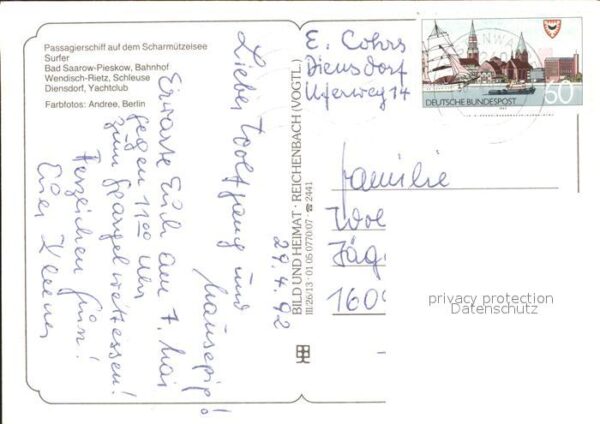 Passagierschiff auf dem Scharmützelsee
Surfer
Bad Saarow-Pieskow, Bahnhof
Wendisch-Rietz, Schleuse
Diensdorf, Yachtclub
Farbfotos: Andree, Berlin
29.4.92
Lieber Wolfgang und
Mausepip!
Erwarte Euch am 7. Mai
gegen 11⁰⁰ Uhr
zum Spargelwettessen!
Herzlichen Gruß!
Euer
BILD UND HEIMAT · REICHENBACH (VOGTL.)
III/26/13 · 01 05 0770/07 · ☎ 2441
E. Cohrs
Diensdorf
Uferweg 14
DEUTSCHE BUNDESPOST
60
Familie
Wol
Jäg
1600
privacy protection
Datenschutz